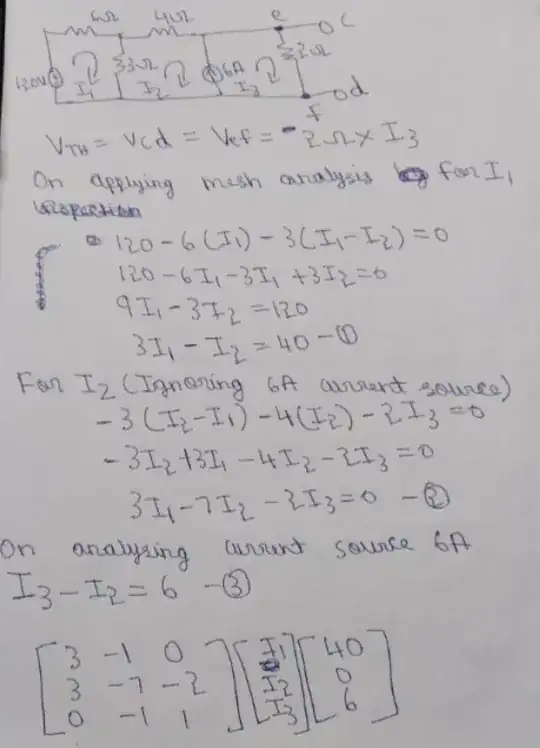 6Ω 4Ω e c
120V I1 3Ω I2 6A I3 2Ω
f d
VTH = Vcd = Vef = -2Ω × I3
On applying mesh analysis for I1
120 - 6(I1) - 3(I1-I2) = 0
120 - 6I1 - 3I1 + 3I2 = 0
9I1 - 3I2 = 120
3I1 - I2 = 40 - ①
For I2 (Ignoring 6A current source)
-3(I2-I1) - 4(I2) - 2I3 = 0
-3I2+3I1 - 4I2 - 2I3 = 0
3I1 - 7I2 - 2I3 = 0 - ②
On analysing current source 6A
I3 - I2 = 6 - ③
3 -1 0 I1 40
3 -7 -2 I2 0
0 -1 1 I3 6